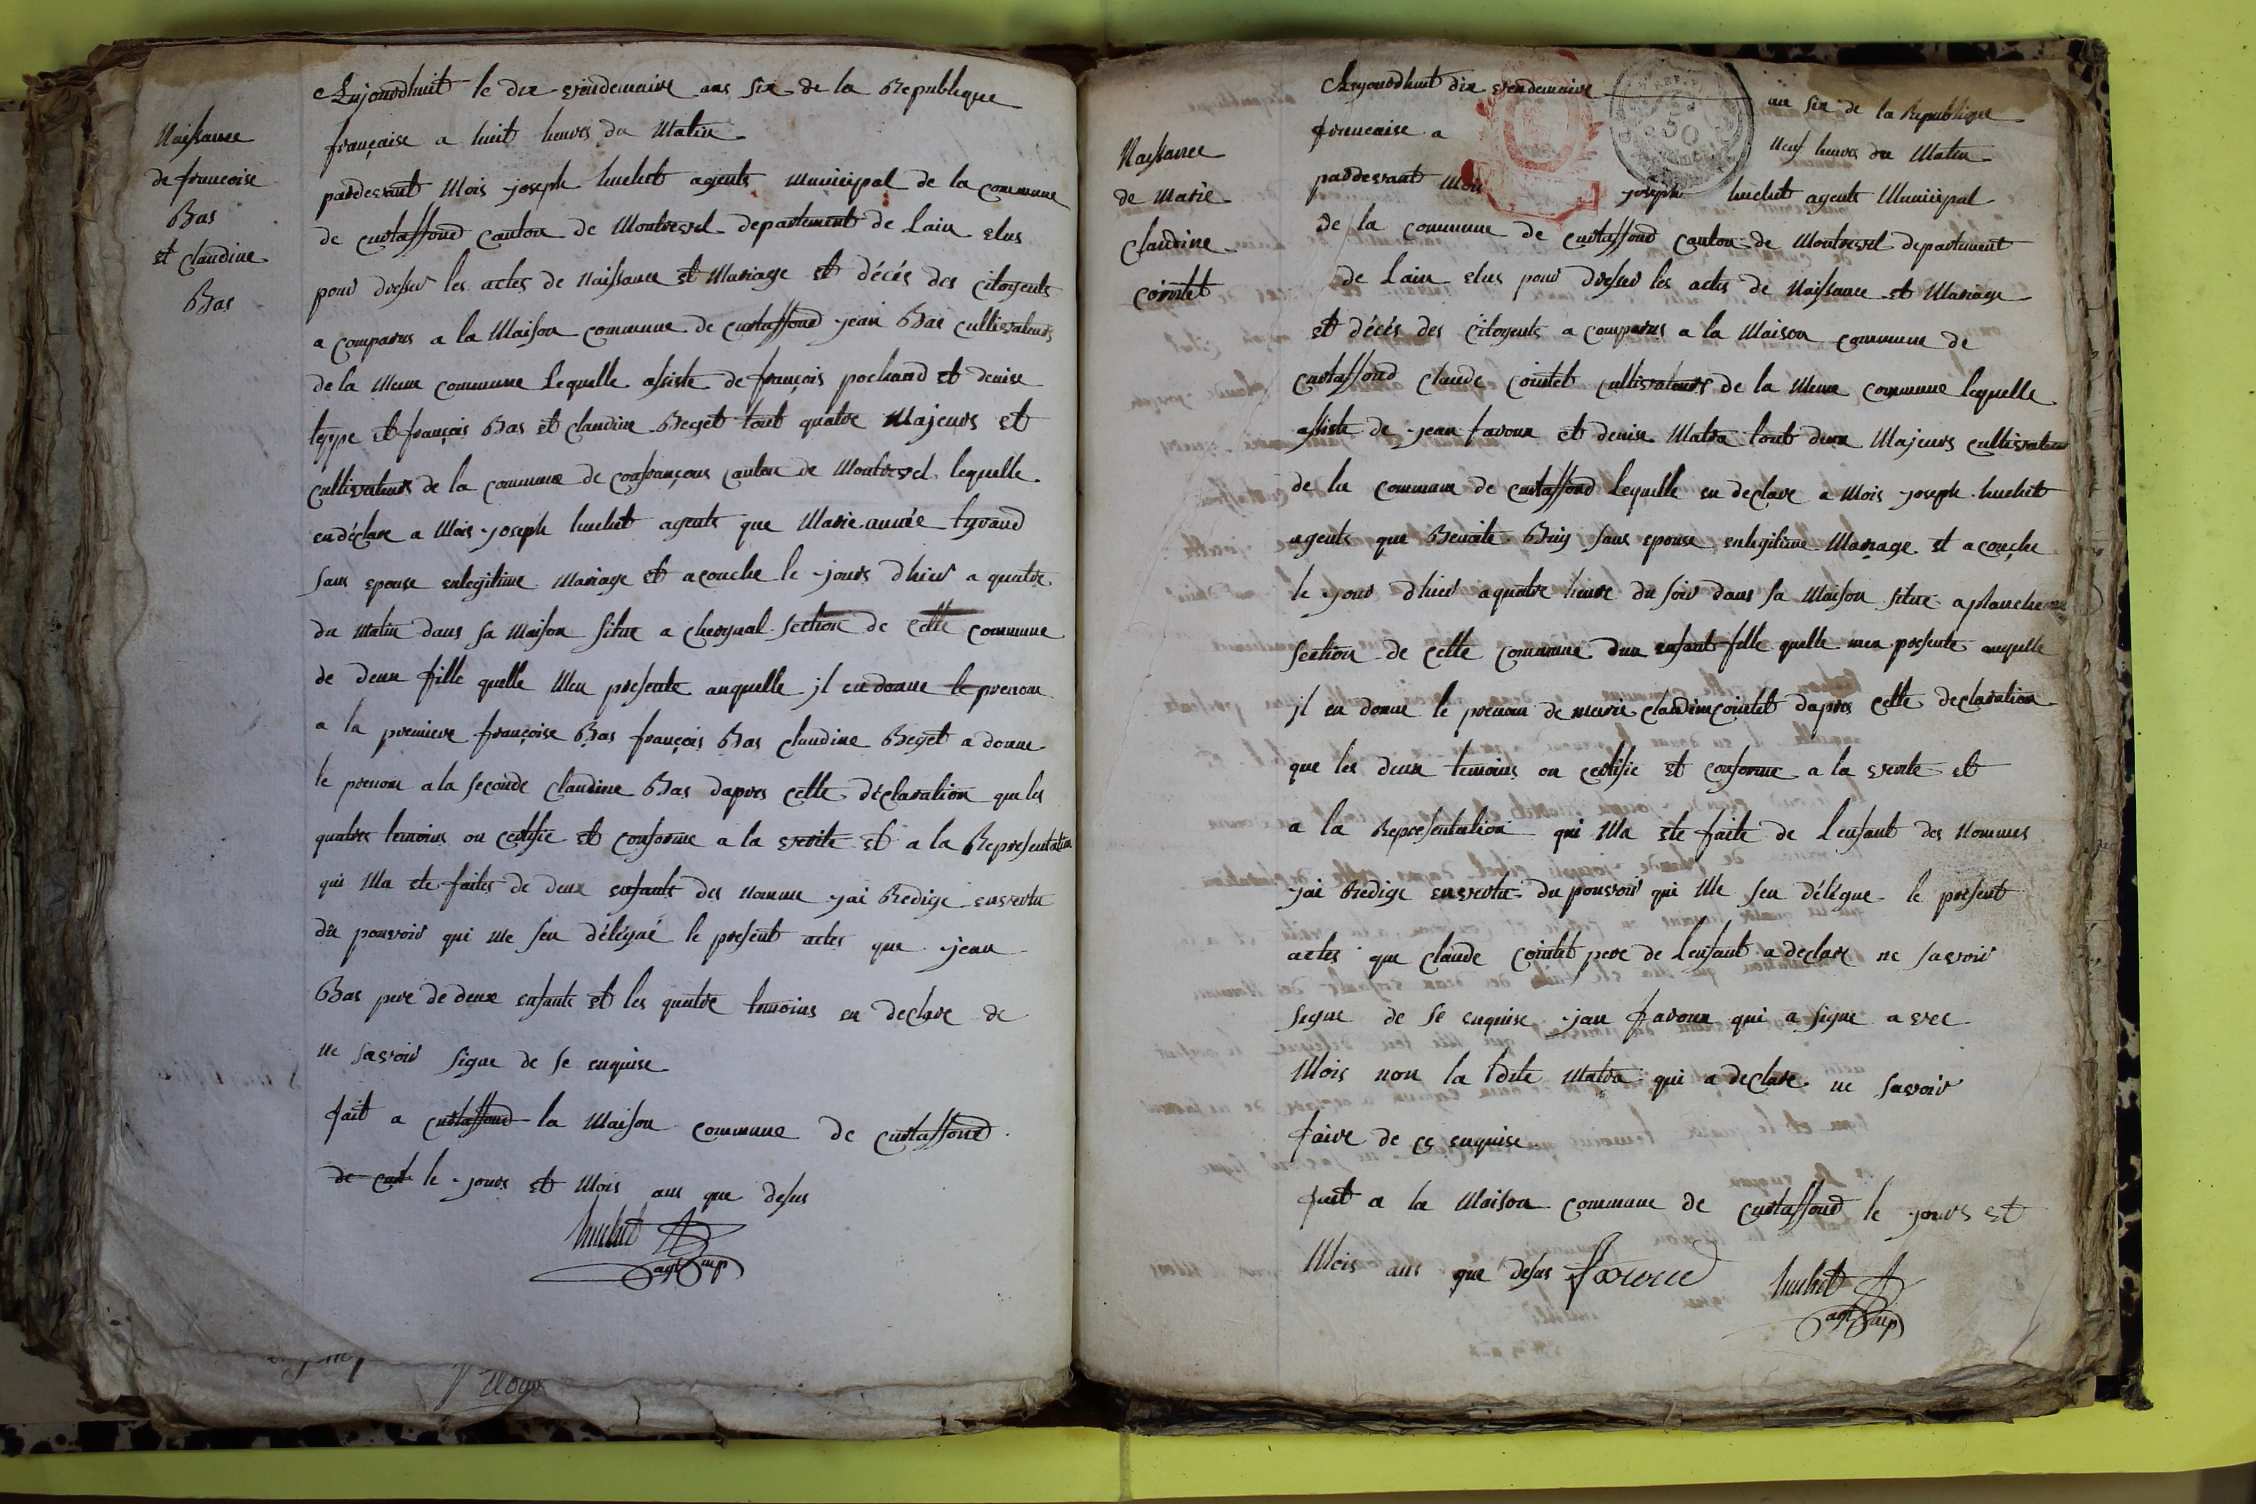 Naissance
de francoise
Bas
et claudine
Bas
Aujourdhuit le dix vendemaire ans six de la Republique
française a huit heures du Matin
pardevant Mois joseph huchet agents municipal de la commune
de curtaffond canton de Montrevel departement de Lain elus
pour dresser les actes de Naissance et Mariage et décés des citoyents
a comparus a la Maison commune de curtaffond jean Bas cultivateurs
de la Meme commune Lequelle assiste de françois pochard et denise
et françois Bas et claudine Beget tout quatre Majeurs et
cultivateurs de la commune de confrançons canton de Montrevel lequelle
en déclare a Mois joseph huchet agents que Marie année
sans epouse enlegitime Mariage et acouche le jours dhier a quatre
du Matin dans sa Maison situe a section de cette commune
de deux fille quelle Men presente auquelle jl en donne le prenom
a la premiere françoise Bas françois Bas claudine Beget a donne
le prenom a la seconde claudine Bas dapres cette déclaration que les
quatres temoins on certifie et conforme a la verite et a la Representation
qui Ma ete faites de deux enfants des nomme jai Redige envertu
du pouvoir qui Me seu délégué le present actes que jean
Bas pere de deux enfants et les quatre temoins en declare de
ne savoir signe de se enquise
fait a curtaffond la Maison commune de curtaffond
de curt le jours et Mois ans que desus
huchet
agt mp
Naissance
de Marie
claudine
cointet
Aujourdhuit dix vendemaire an six de la Republique
francaise a Neuf heures du Matin
pardevant Mois joseph huchet agents Municipal
de la commune de curtaffond canton de Montrevel departement
de Lain elus pour dresser les actes de Naissance et Mariage
et décés des citoyents a comparus a la Maison commune de
curtaffond claude cointet cultivateurs de la Meme commune lequelle
assiste de jean favoux et denise Matra tout deux Majeurs cultivateur
de la commune de curtaffond Lequelle en declare a Mois joseph huchet
agents que Benoite Buiy sans epouse enlegitime Mariage et acouche
le jour dhier aquatre heure du soir dans sa Maison situe
section de cette commune dun enfant fille quelle men presente auquelle
jl en donne le prenom de marie claudine cointet dapres cette declaration
que les deux temoins on certifie et conforme a la verite et
a la Representation qui Ma ete faite de lenfant des nommes
jai Redige envertu du pouvoir qui Me seu délégue le present
actes que claude cointet pere de Lenfant a declare ne savoir
signe de se enquise jean favoux qui a signe avec
Mois non la dite Matra qui a declare ne savoir
faire de ce enquise
fait a la Maison commune de curtaffond le jours et
Mois ans que desus
huchet
agt mp